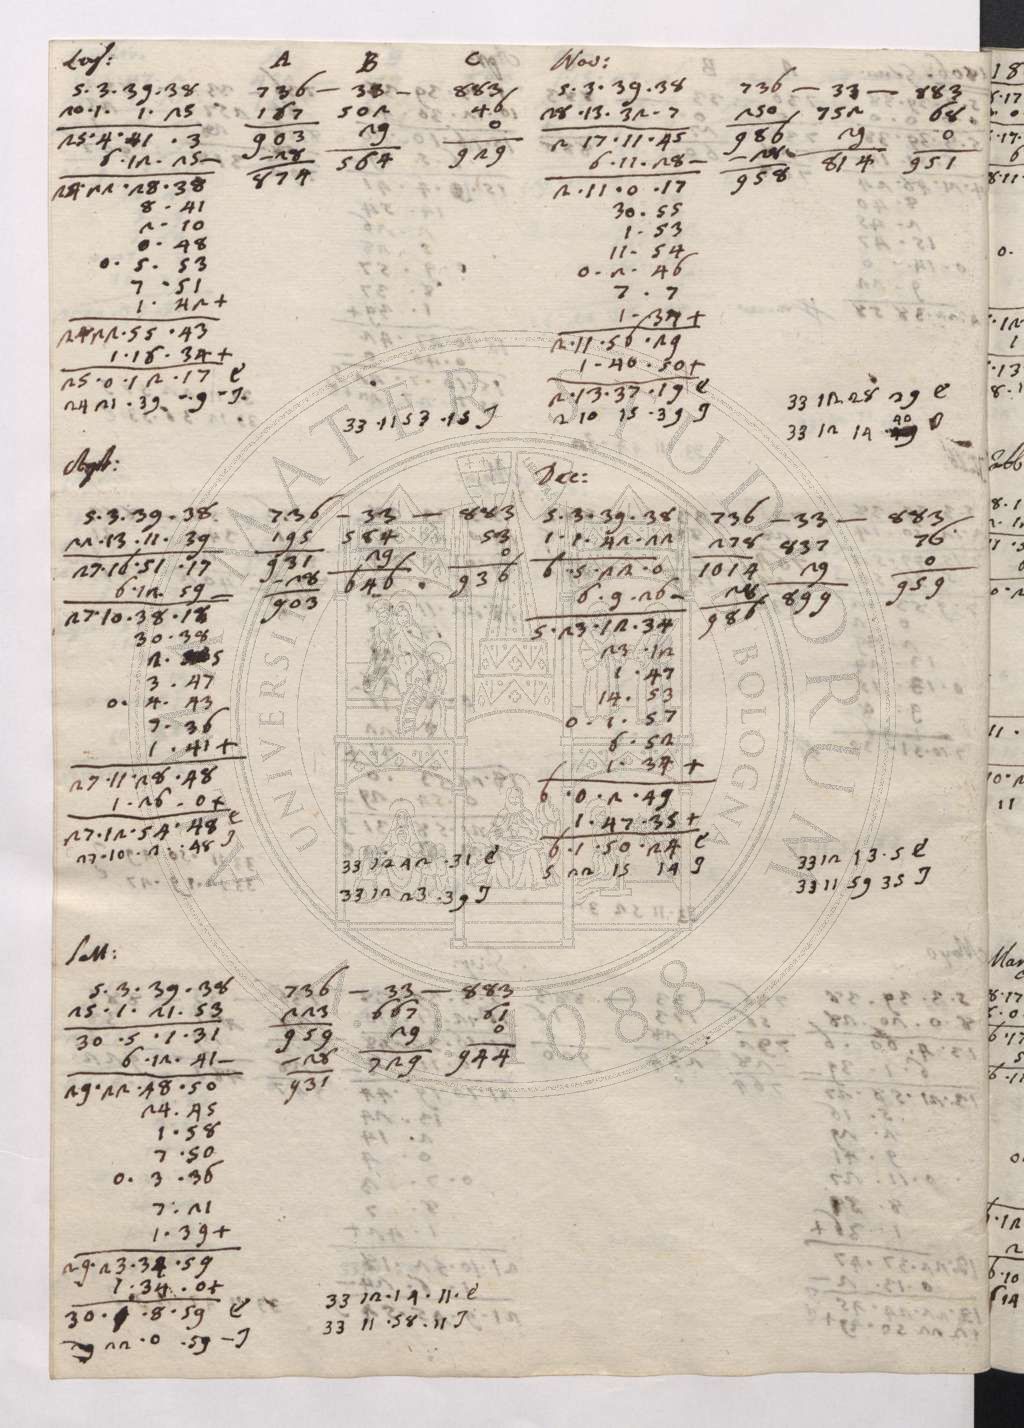 Lug: A B C
5.3.39.38 736 — 33 — 883
20.1.1.25 167 502 46
25.4.41.3 903 29 0
6.12.25– –28 564 929
24.22.28.38 874
8.41
2.10
0.48
0.5.53
7.51
1.42+
24.22.55.43
1.16.34+
25.0.12.17 e
24 21.39.9 –J
33.11 53.15 J
Nov:
5.3.39.38 736 — 33 — 883
28.13.32.7 250 752 68
2 17.11.45 986 29 0
6.11.28– –28 814 951
2.11.0.17 958
30.55
1.53
11.54
0.2.46
7.7
1.34+
2.11.56.29
1.40.50+
2.13.37.19 e
2 10 15.39 J
33 12 28 29 e
33 12 14 40
Agto:
5.3.39.38 736 — 33 — 883
22.13.11.39 195 584 53
27.16.51.17 931 29 0
6.12.59– –28 646 936
27.10.38.18 903
30.38
3.47
0.4.43
7.36
1.41+
27.11.28.48
1.26.0+
27.12.54.48 e
27.10.2.48 J
33 12 42.31 e
33 12 23.39 J
Dec:
5.3.39.38 736 — 33 — 883
1.1.42.22 278 837 76
6.5.22.0 1014 29 0
6.9.26– 28 899 959
5.23.12.34 986
23.12
1.47
14.53
0.1.57
6.52
1.34+
6.0.2.49
1.47.35+
6.1.50.24 e
5 22 15 14 J
33 12 13.5 e
33 11 59 35 J
Sett:
5.3.39.38 736 — 33 — 883
25.1.21.53 223 667 61
30.5.1.31 959 29 0
6.12.41– –28 729 944
29.22.48.50 931
24.45
1.58
7.50
0.3.36
7.21
1.39+
29.23.34.59
1.34.0+
30.1.8.59 e
29 22.0.59 –J
33 12.14.11.e
33 11.58.11 J
ALMA MATER STUDIORUM
UNIVERSITÀ DI BOLOGNA
A.D. 1088